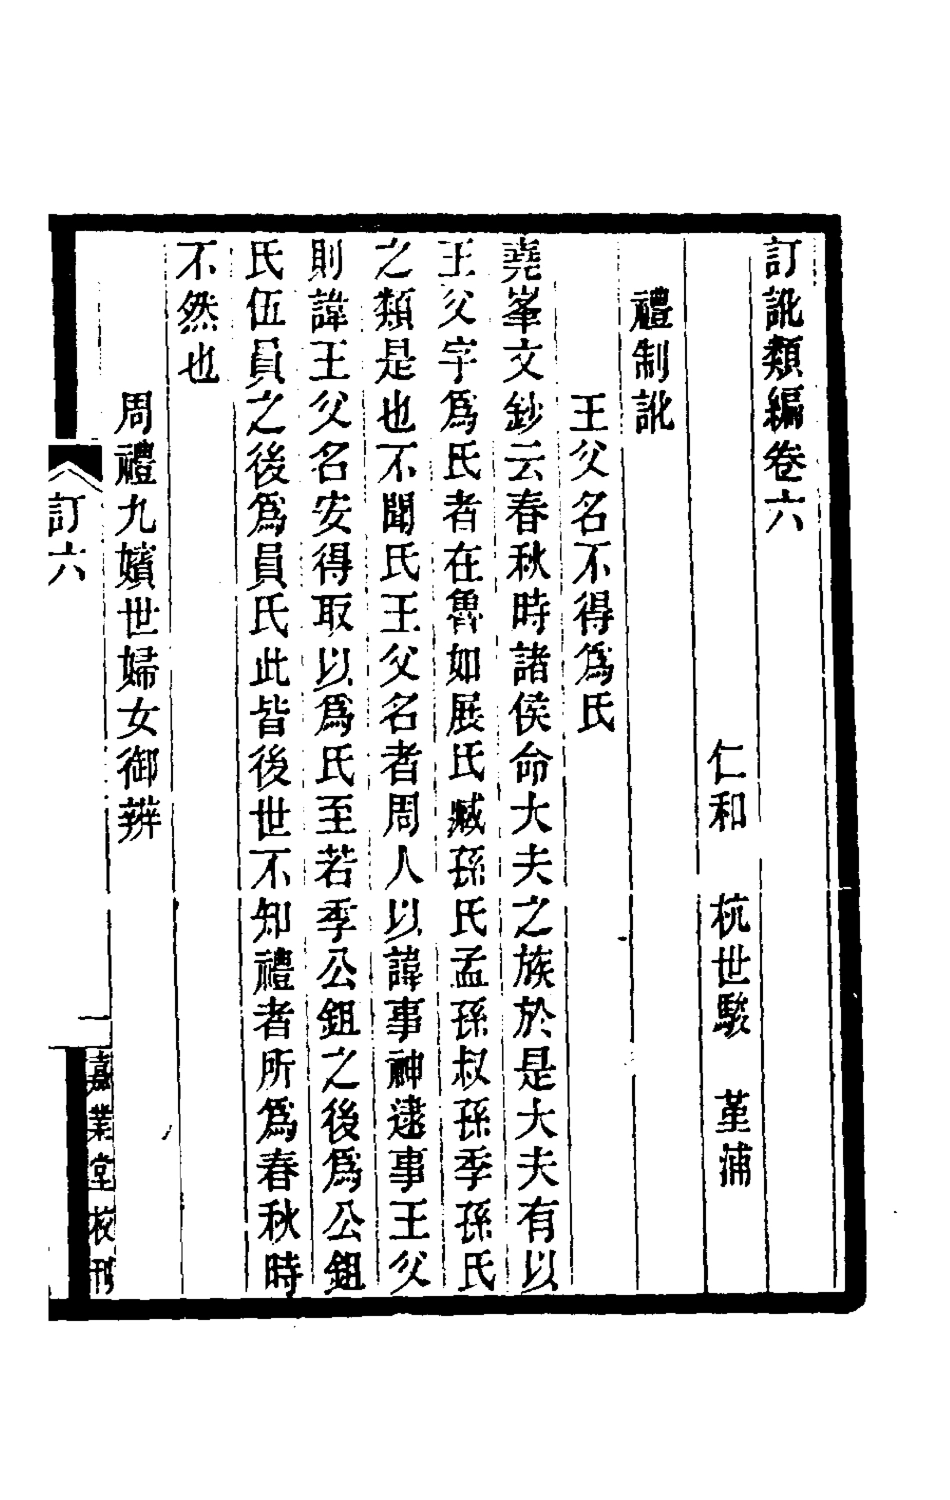 訂訛類編卷六
仁和　杭世駿　堇浦
禮制訛
王父名不得爲氏
堯峯文鈔云春秋時諸侯命大夫之族於是大夫有以
王父字爲氏者在魯如展氏臧孫氏孟孫叔孫季孫氏
之類是也不聞氏王父名者周人以諱事神逮事王父
則諱王父名安得取以爲氏至若季公鉏之後爲公鉏
氏伍員之後爲員氏此皆後世不知禮者所爲春秋時
不然也
周禮九嬪世婦女御辨
訂六
一
嘉業堂校刊